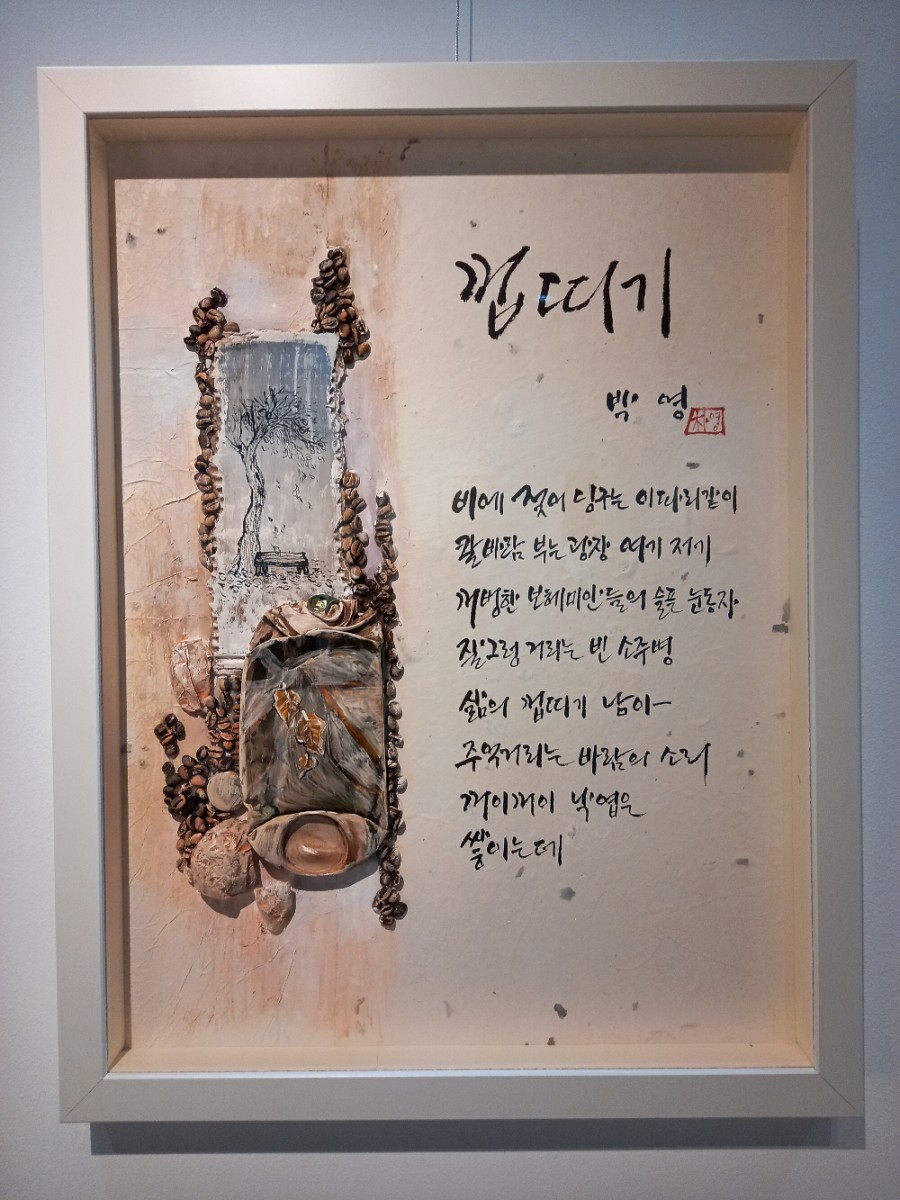 껍띠기
박 영
비에 젖어 딩구는 이파리같이
칼바람 부는 광장 여기 저기
꺼벙한 보헤미안들의 슬픈 눈동자
질그렁 거리는 빈 소주병
삶의 껍띠기 남아-
주억거리는 바람의 소리
꺼이꺼이 낙엽은
쌓이는데